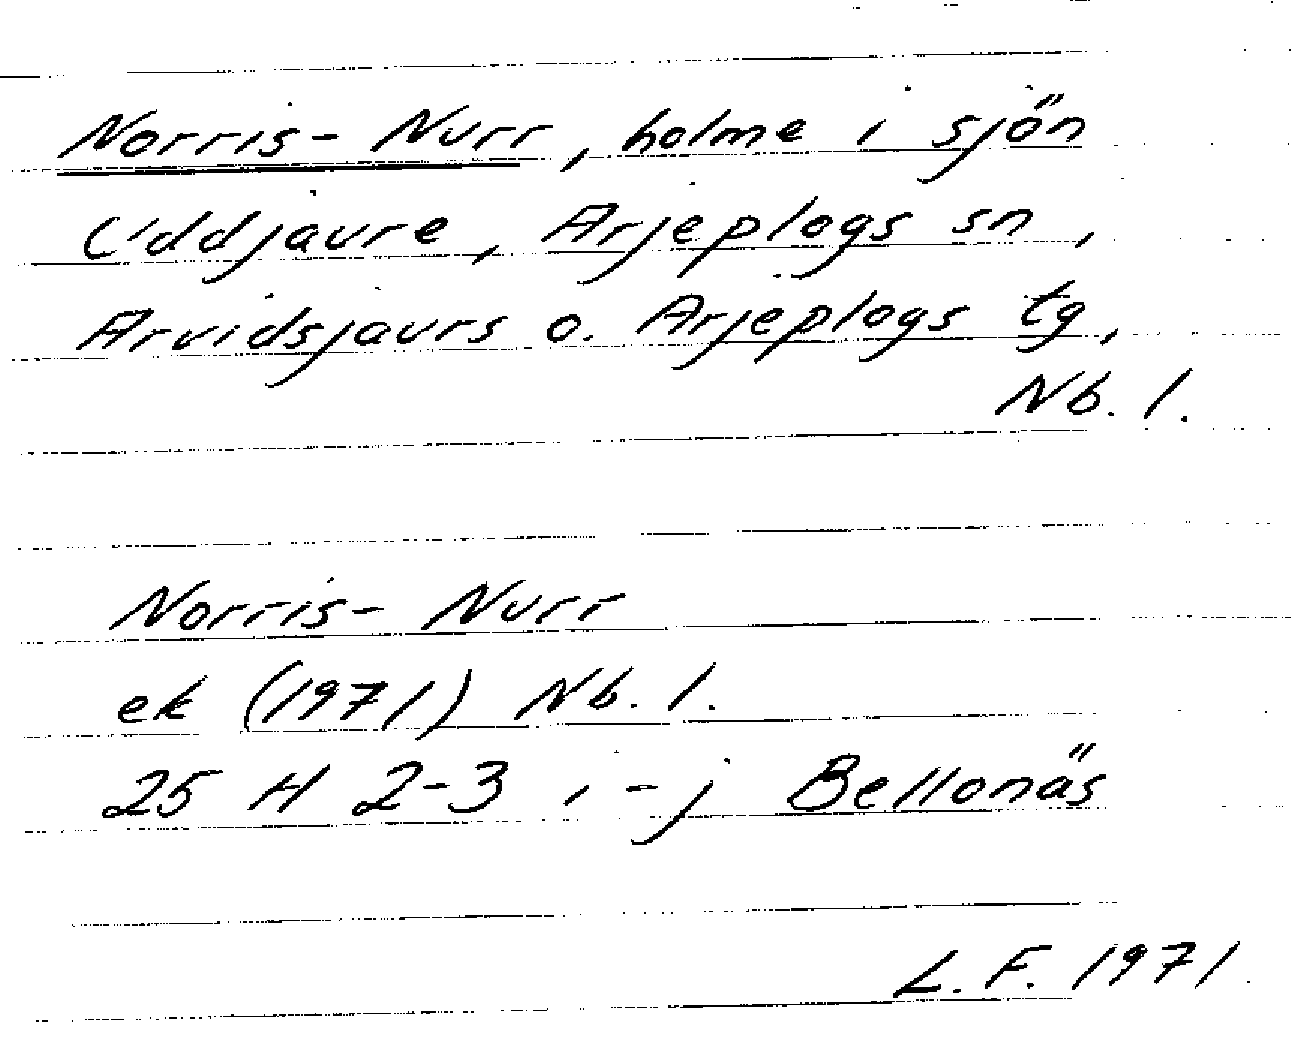 Norris-Nurr, holme i sjön
Uddjaure, Arjeplogs sn,
Arvidsjaurs o. Arjeplogs tg,
Nb. l.
Norris-Nurr
ek (1971) Nb. l.
25 H 2-3 i-j Bellonäs
L. F. 1971